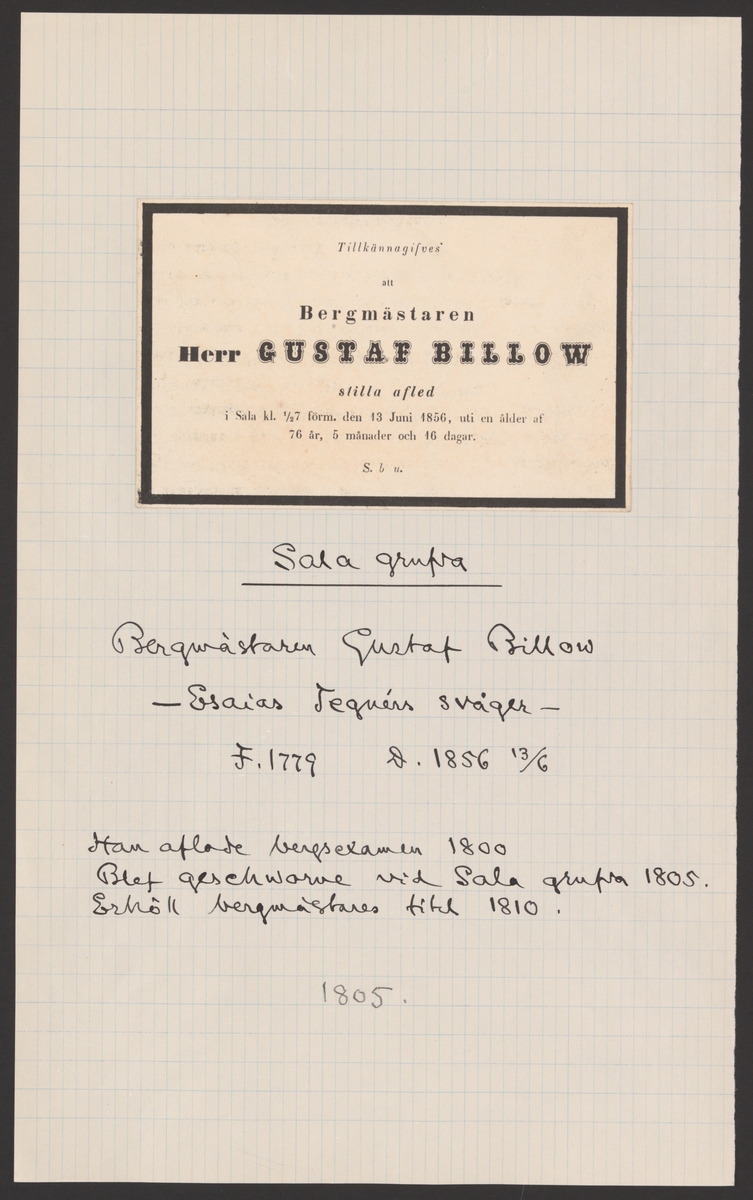 Tillkännagifves
att
Bergmästaren
Herr GUSTAF BILLOW
stilla afled
i Sala kl. ½7 förm. den 13 Juni 1856, uti en ålder af
76 år, 5 månader och 16 dagar.
S. b u.
Sala grufva
Bergmästaren Gustaf Billow
— Esaias Tegnérs svåger —
F. 1779 D. 1856 13/6
Han aflade bergsexamen 1800
Blef geschworne vid Sala grufva 1805.
Erhöll bergmästares titel 1810.
1805.